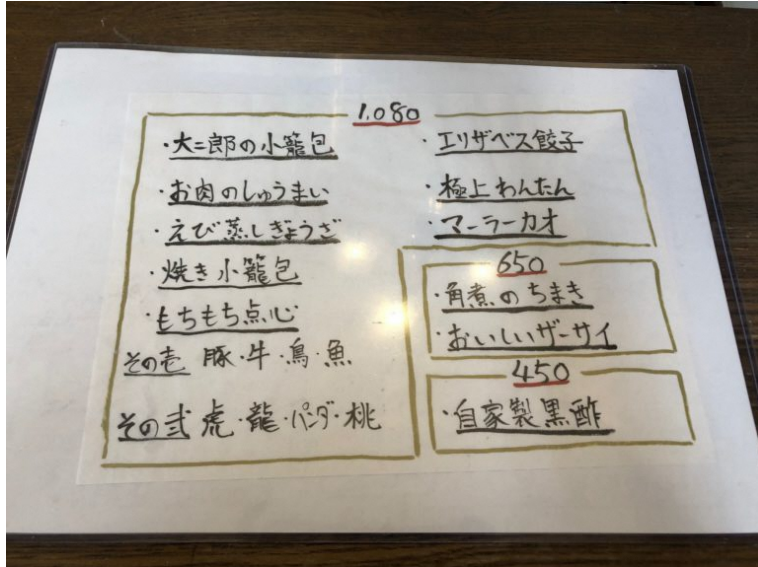 1.080
・大二郎の小籠包
・お肉のしゅうまい
・えび蒸しぎょうざ
・焼き小籠包
・もちもち点心
その壱 豚・牛・鳥・魚
その弐 虎・龍・パンダ・桃
・エリザベス餃子
・極上わんたん
・マーラーカオ
650
・角煮のちまき
・おいしいザーサイ
450
・自家製黒酢